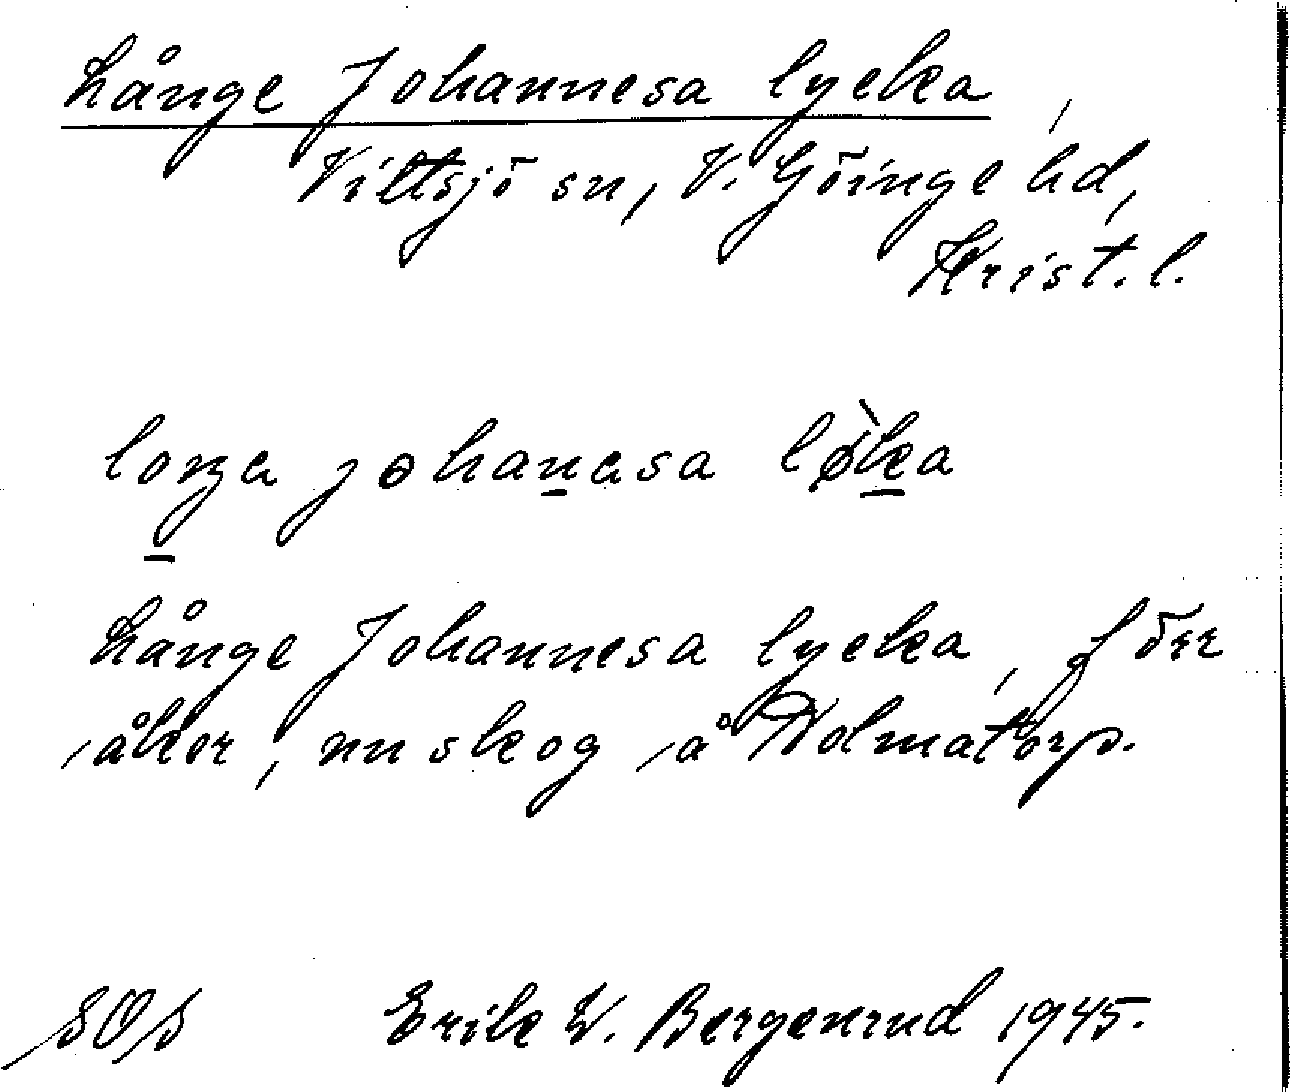 Långe Johannesa lycka,
Vittsjö sn, V. Göinge hd,
Krist. l.
loŋa johanasa lø̀ka
Långe Johannesa lycka, förr
åker, nu skog å Tolmatorp.
SOS Erik W. Bergenrud 1945.